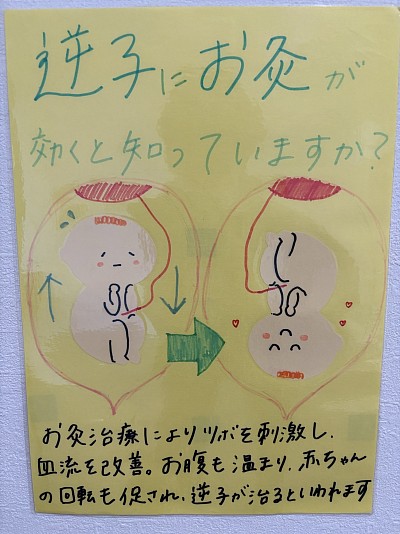 逆子にお灸が
効くと知っていますか?
お灸治療によりツボを刺激し、
血流を改善。お腹も温まり、赤ちゃん
の回転も促され、逆子が治るといわれます